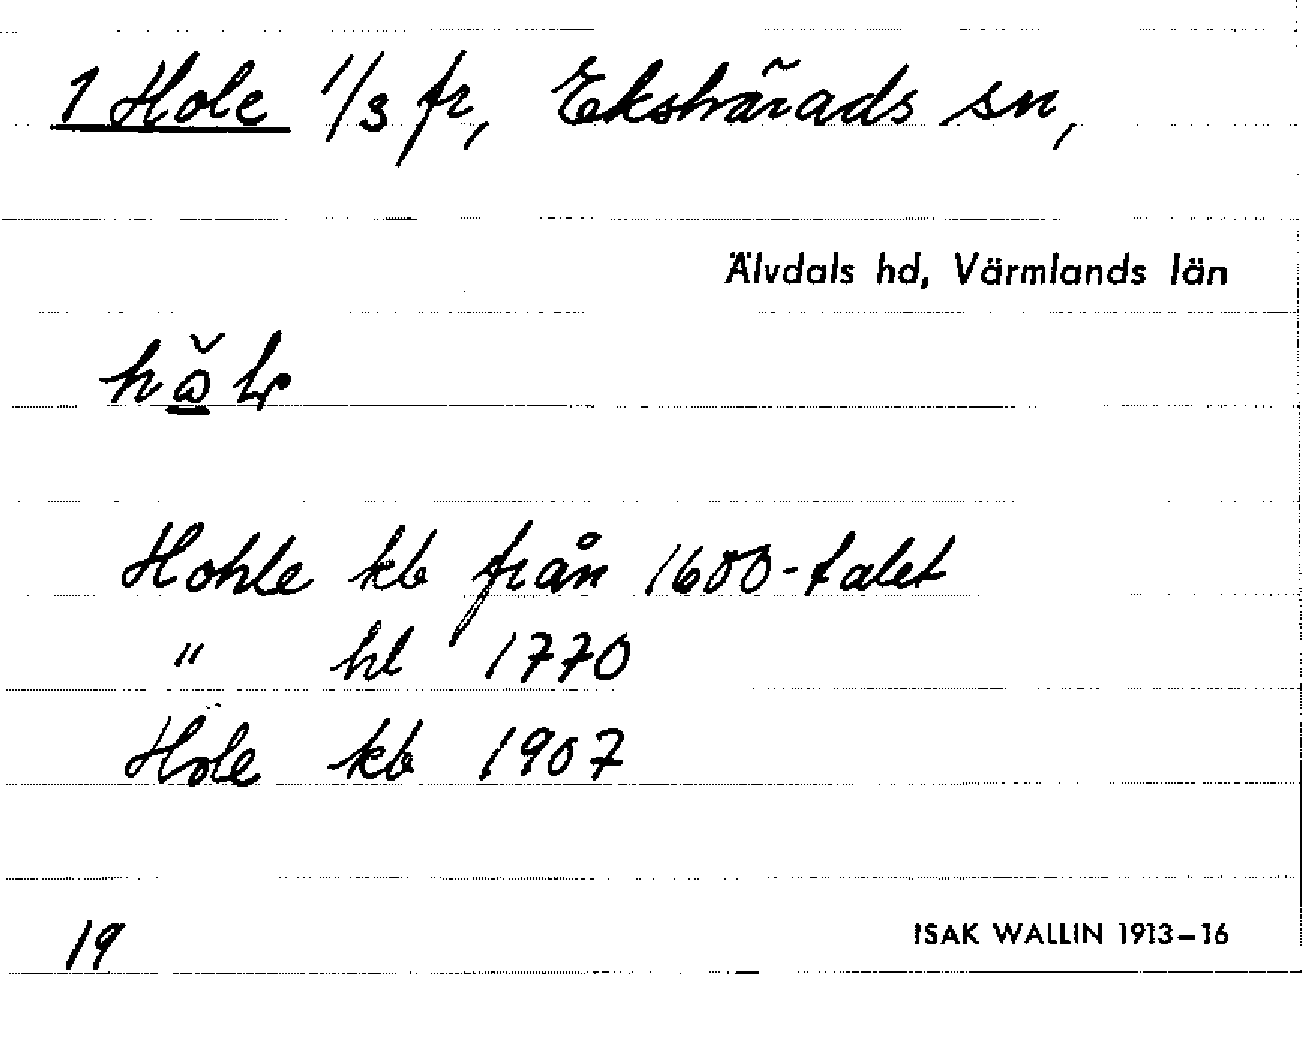 1 Hole 1/3 fr, Ekshärads sn,
Älvdals hd, Värmlands län
Hohle kb från 1600-talet
" hl 1770
Hole kb 1907
19
ISAK WALLIN 1913–16